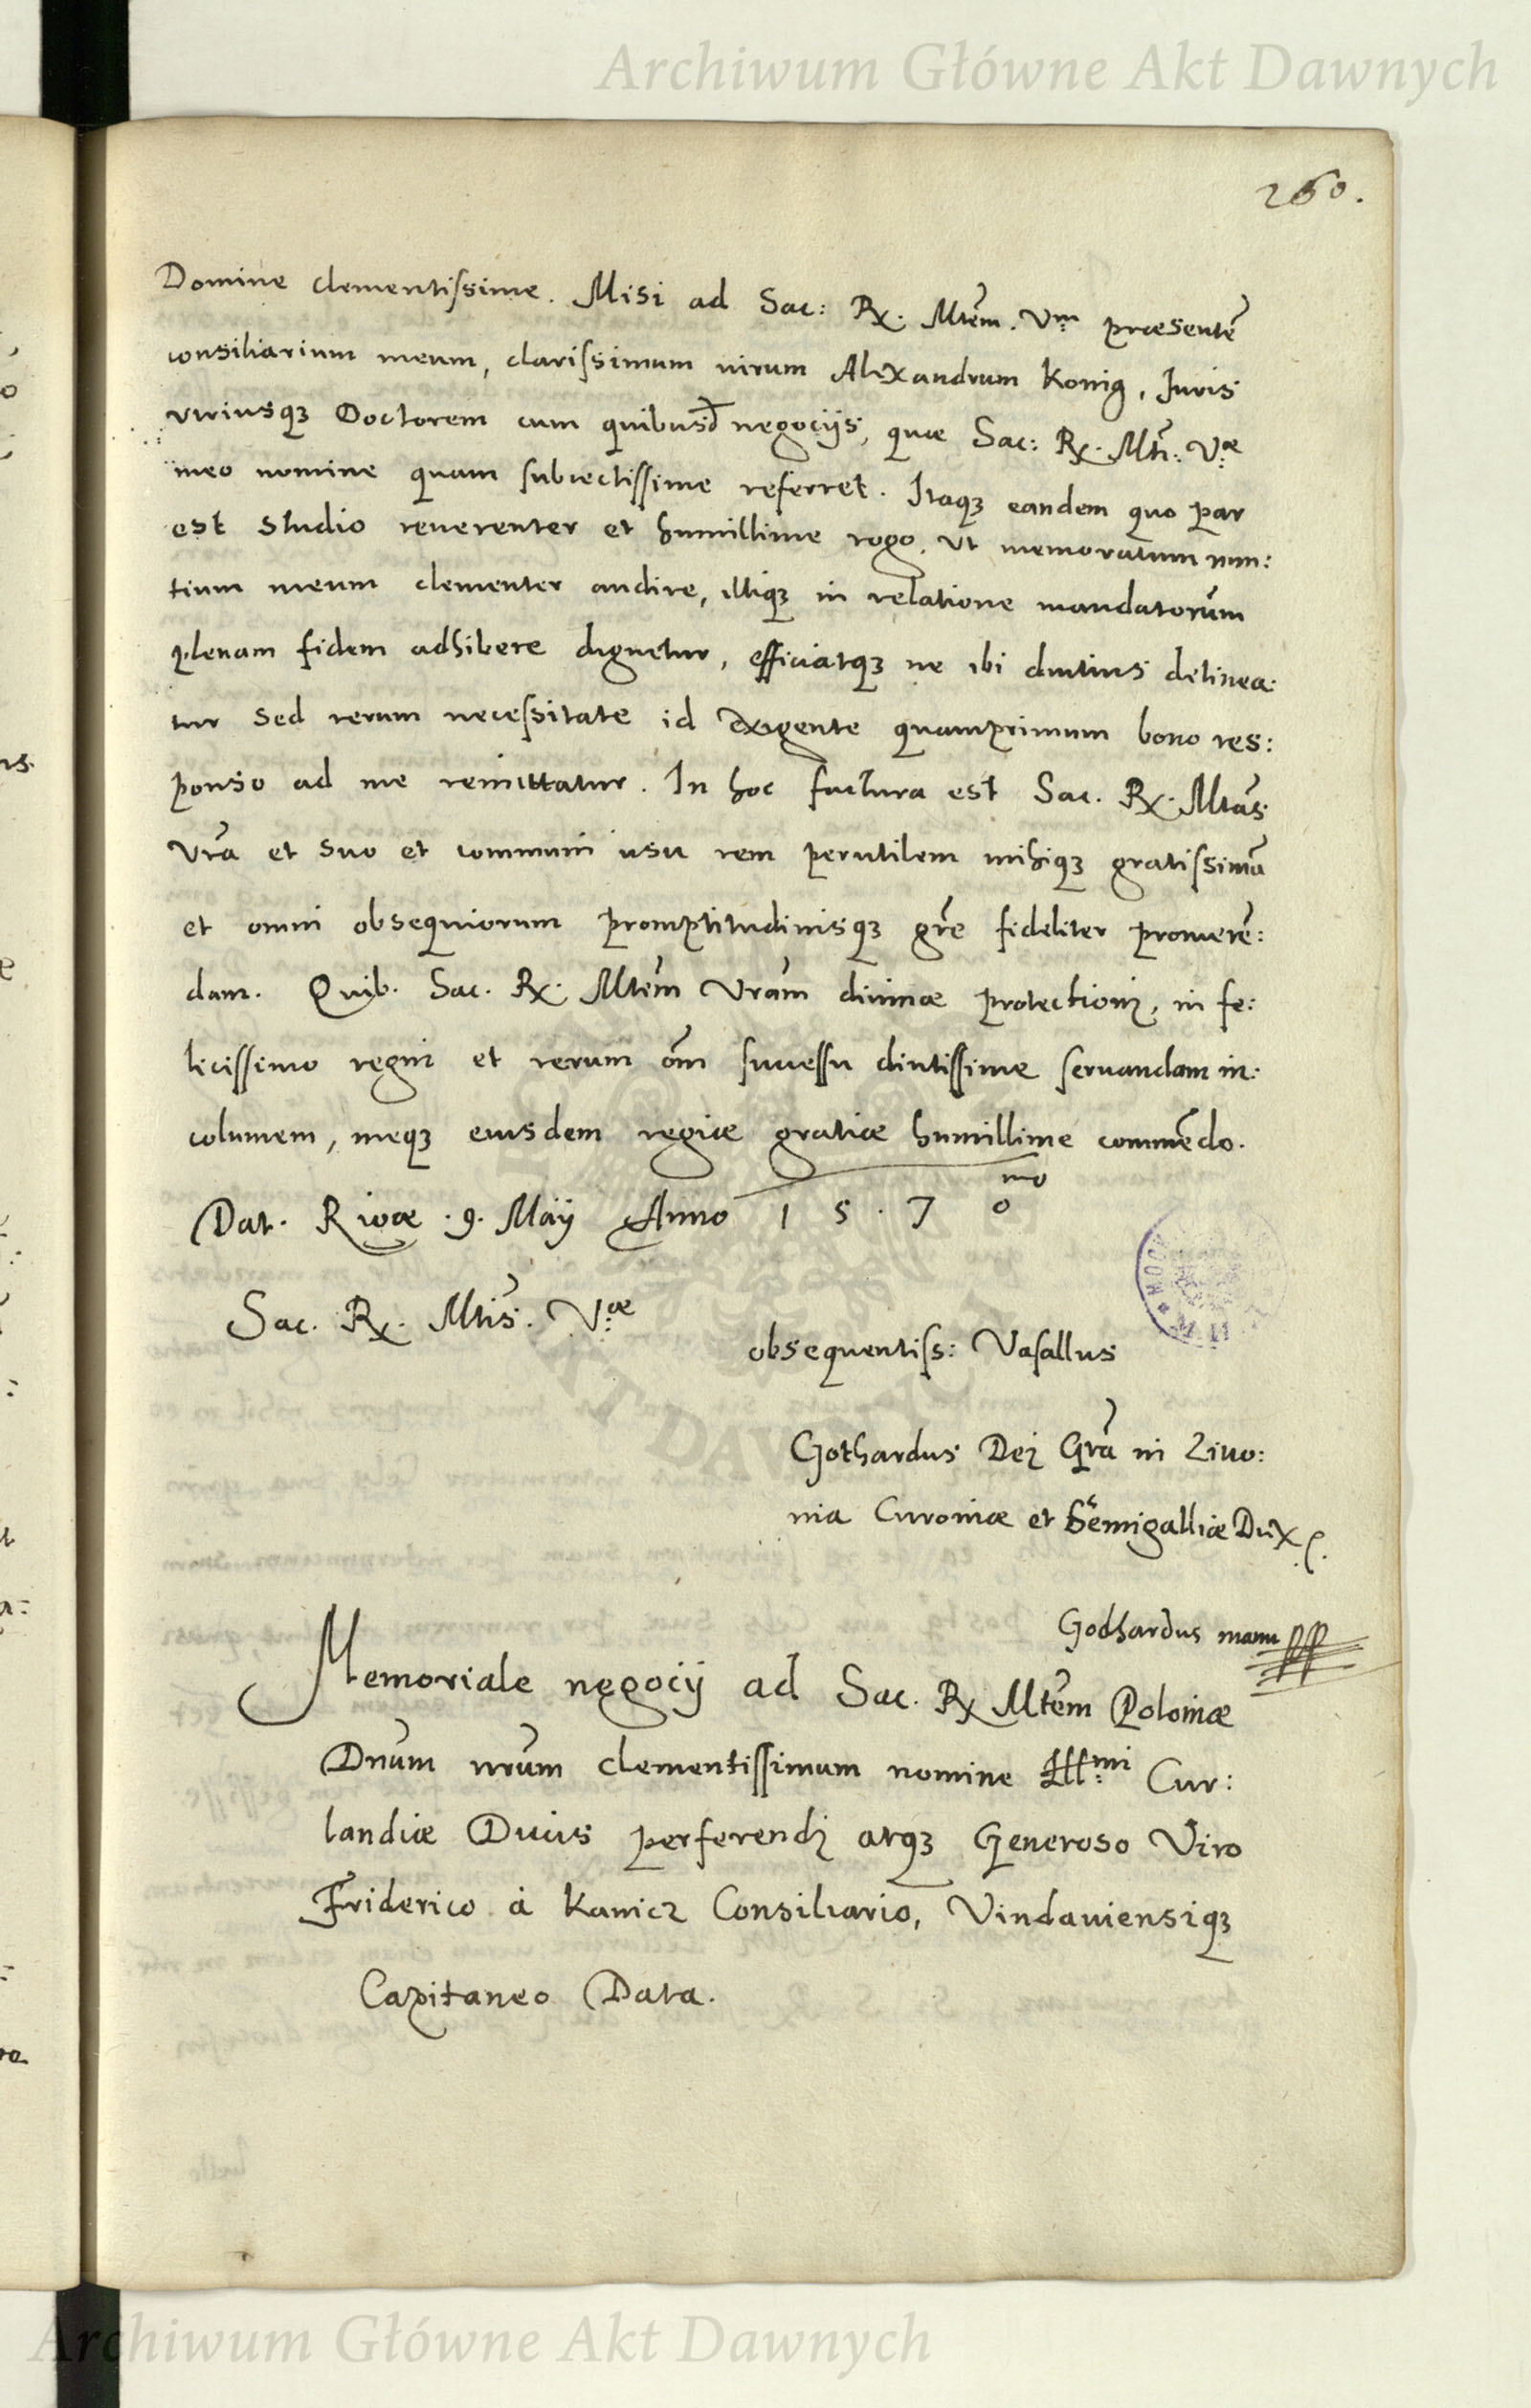 Archiwum Główne Akt Dawnych
260.
Domine clementissime. Misi ad Sac: Rx. Mtem. Vm præsentē
consiliarium meum, clarissimum virum Alexandrum Konig, Iuris
vtriusqȝ Doctorem cum quibusd negocijs, quæ Sac: Rx. Mti: Væ
meo nomine quam subiectissime referret. Itaqȝ eandem quo par
est studio reuerenter et humillime rogo, vt memoratum nun:
tium meum clementer audire, illiqȝ in relatione mandatorum
plenam fidem adhibere dignetur, efficiatqȝ ne ibi diutius detinea:
tur sed rerum necessitate id exigente quamprimum bono res:
ponso ad me remittatur. In hoc factura est Sac. Rx. Mtas
Vra et suo et communi usu rem perutilem mihiqȝ gratissimā
et omni obsequiorum promptitudinisqȝ gre fideliter promerē:
dam. Quib. Sac. Rx. Mtem Vram diuinæ protectioni, in fe:
licissimo regni et rerum om̄ successu diutissime seruandam in:
columem, meqȝ eiusdem regiæ gratiæ humillime commēdo.
Dat. Rigæ .9. Maij Anno 1 5 . 7 0mo
Sac. Rx. Mtis. Væ
obsequentiss: Vasallus
Gothardus Dei Gra in Liuo:
nia Curoniæ et Semigalliæ Dux
Godhardus manu
Memoriale negocij ad Sac. Rx Mtem Poloniæ
Dnum nrum clementissimum nomine Illmi Cur:
landiæ Ducis perferendi atqȝ Generoso Viro
Friderico à Kanicz Consiliario, Vindauiensiqȝ
Capitaneo Data.
Archiwum Główne Akt Dawnych